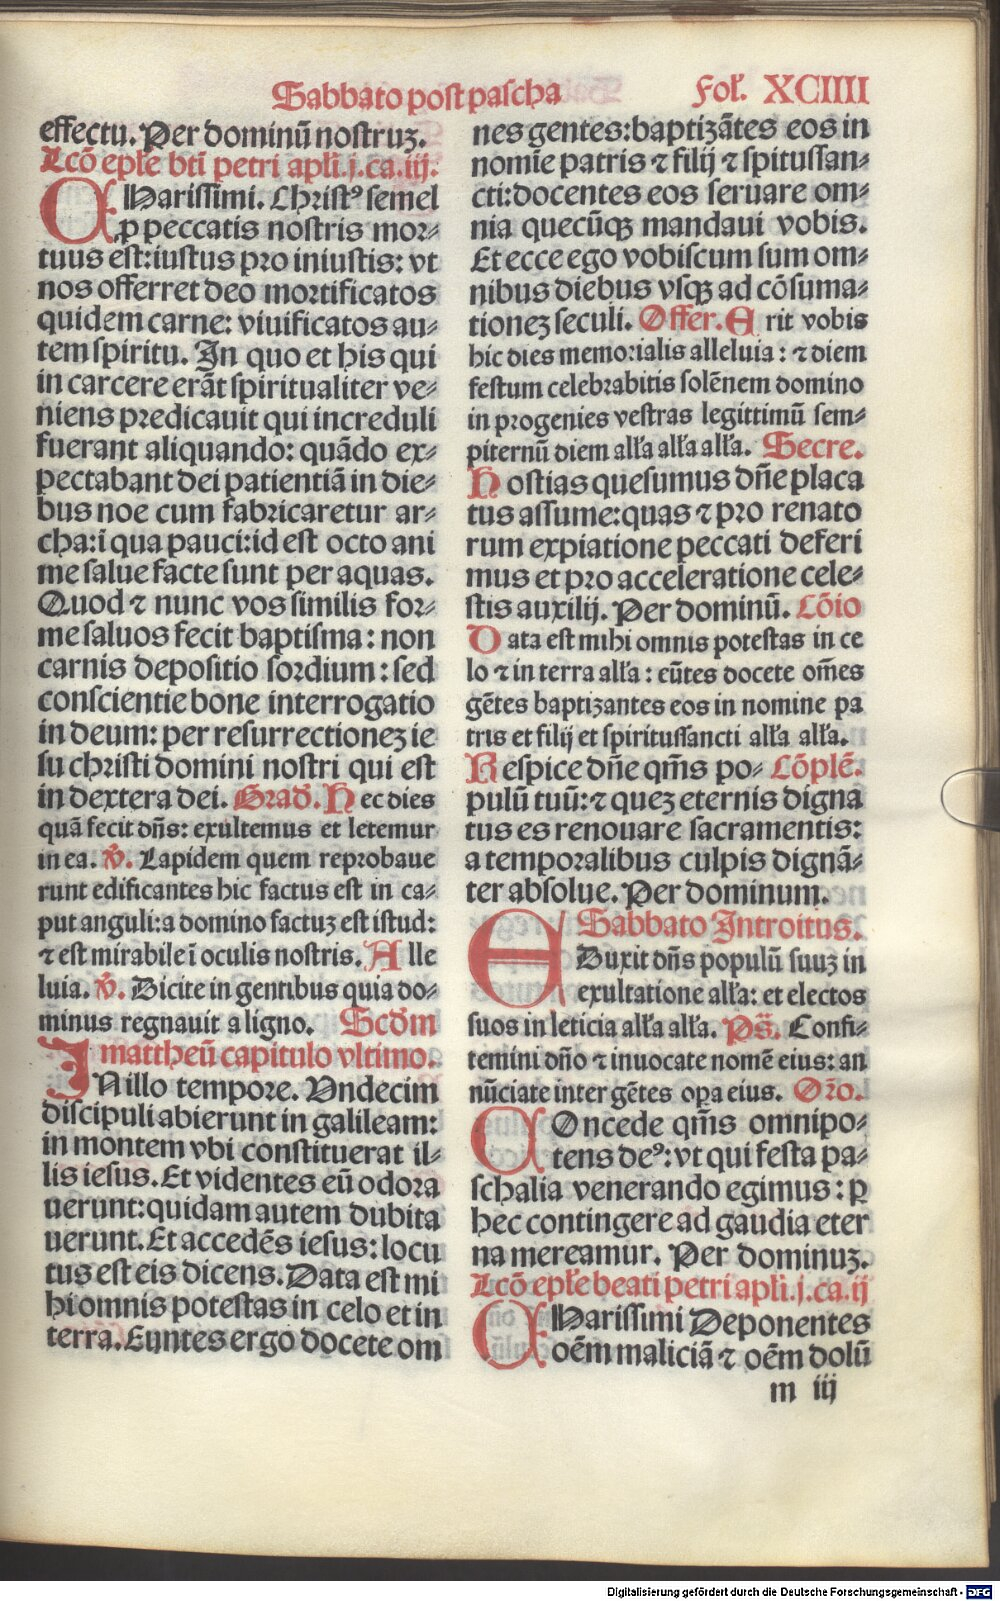 Sabbato post pascha
Fol. XCIIII
effectu. Per dominū nostruꝫ.
Lcō epłe bti petri apli. j. ca. iij.
CHarissimi. Christꝰ semel
ꝓ peccatis nostris mor⸗
tuus est: iustus pro iniustis: vt
nos offerret deo mortificatos
quidem carne: viuificatos au⸗
tem spiritu. In quo et his qui
in carcere erāt spiritualiter ve⸗
niens predicauit qui increduli
fuerant aliquando: quādo ex⸗
pectabant dei patientiā in die⸗
bus noe cum fabricaretur ar⸗
cha: ī qua pauci: id est octo ani
me salue facte sunt per aquas.
Quod ⁊ nunc vos similis for⸗
me saluos fecit baptisma: non
carnis depositio sordium: sed
conscientie bone interrogatio
in deum: per resurrectioneꝫ ie
su christi domini nostri qui est
in dextera dei. Grad. Hec dies
quā fecit dn̄s: exultemus et letemur
in ea. ℣. Lapidem quem reprobaue
runt edificantes hic factus est in ca⸗
put anguli: a domino factuꝫ est istud:
⁊ est mirabile ī oculis nostris. Alle
luia. ℣. Dicite in gentibus quia do⸗
minus regnauit a ligno. Scd̄m
mattheū capitulo vltimo.
IN illo tempore. Vndecim
discipuli abierunt in galileam:
in montem vbi constituerat il⸗
lis iesus. Et videntes eū odora
uerunt: quidam autem dubita
uerunt. Et accedēs iesus: locu
tus est eis dicens. Data est mi
hi omnis potestas in celo et in
terra. Euntes ergo docete om
nes gentes: baptizātes eos in
nomīe patris ⁊ filij ⁊ spiritussan⸗
cti: docentes eos seruare om⸗
nia quecūqꝫ mandaui vobis.
Et ecce ego vobiscum sum om⸗
nibus diebus vsqꝫ ad cōsuma⸗
tioneꝫ seculi. Offer. Erit vobis
hic dies memorialis alleluia: ⁊ diem
festum celebrabitis solēnem domino
in progenies vestras legittimū sem⸗
piternū diem ałła ałła ałła. Secre.
Hostias quesumus dn̄e placa
tus assume: quas ⁊ pro renato
rum expiatione peccati deferi
mus et pro acceleratione cele⸗
stis auxilij. Per dominū. Cōio
Data est mihi omnis potestas in ce
lo ⁊ in terra ałła: eūtes docete om̄es
gētes baptizantes eos in nomine pa
tris et filij et spiritussancti ałła ałła.
Respice dn̄e qm̄s po⸗ Cōplē.
pulū tuū: ⁊ queꝫ eternis digna
tus es renouare sacramentis:
a temporalibus culpis dignā⸗
ter absolue. Per dominum.
Sabbato Introitus.
EDuxit dn̄s populū suuꝫ in
exultatione ałła: et electos
suos in leticia ałła ałła. Ps̄. Confi⸗
temini dn̄o ⁊ inuocate nomē eius: an
nūciate inter gētes oꝑa eius. Or̄o.
COncede qm̄s omnipo⸗
tens deꝰ: vt qui festa pa⸗
schalia venerando egimus: ꝑ
hec contingere ad gaudia eter
na mereamur. Per dominuꝫ.
Lcō epłe beati petri apli. j. ca. ij
CHarissimi Deponentes
oēm maliciā ⁊ oēm dolū
m iij
Digitalisierung gefördert durch die Deutsche Forschungsgemeinschaft - DFG